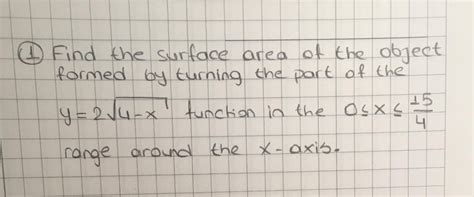 ① Find the surface area of the object
formed by turning the part of the
y = 2√(4-x) function in the 0≤x≤ 15/4
range around the x-axis.